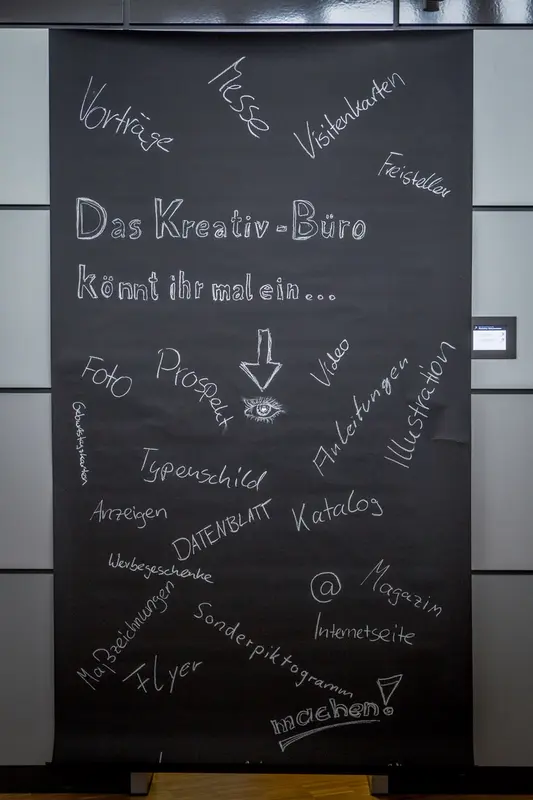 Vorträge
Messe
Visitenkarten
Freisteller
Das Kreativ-Büro
könnt ihr mal ein...
Foto
Prospekt
Video
Anleitungen
Illustration
Geburtstagskarten
Typenschild
Anzeigen
DATENBLATT
Katalog
Werbegeschenke
@
Magazin
Maßzeichnungen
Sonderpiktogramm
Internetseite
Flyer
machen!